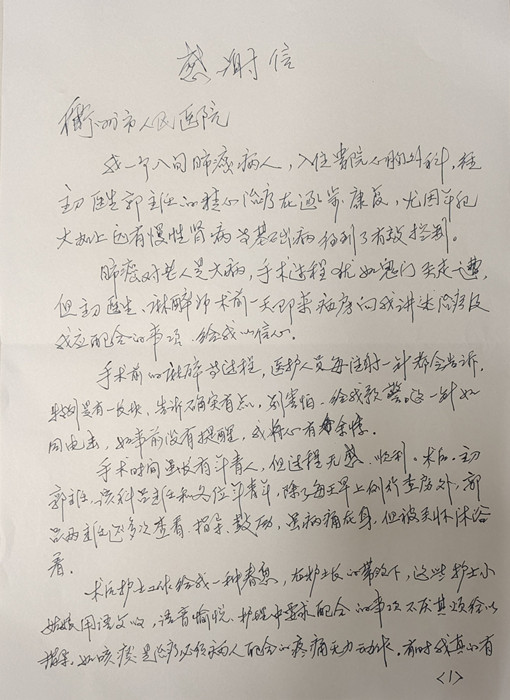 感谢信
衢州市人民医院
我一个八旬肺癌病人，入住贵院心胸外科，经
主刀医生郭主任的精心治疗在逐步康复，尤因年纪
大加上还有慢性肾病等基础病得到了有效控制。
肺癌对老人是大病，手术过程犹如鬼门关走一遭，
但主刀医生、麻醉师术前一天即来病房向我讲述治疗及
我应配合的事项，给我以信心。
手术前的麻醉等过程，医护人员每注射一针都会告诉，
其中一针 告诉确实有点，别害怕，给我敲警。这一针如
同电击，如事前没有提醒，我将心有余悸。
手术时间虽没有年青人，但过程无感、顺利。术后，主刀
郭主任、该科吕主任和各位年青，除了每天早上例行查房外，郭
吕两主任还多次查看、指导、鼓励，虽病痛在身，但被关怀沐浴
着。
术后护士工作给我一种看见，在护士长的带领下，这些护士小
姑娘用语文明，语音愉悦，护理中要求配合的事项不厌其烦给以
指导。如咳痰是治疗必须病人配合的疼痛无力，有时我真的有
<1>